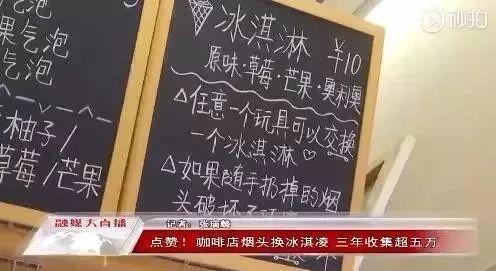 秒拍
冰淇淋 ¥10
原味·草莓·芒果·奥利奥
△任意一个玩具可以交换
一个冰淇淋♡
△如果随手扔掉的烟
果气泡
气泡
柚子/
草莓/芒果
融媒大直播
记者：张瑞麟
点赞！咖啡店烟头换冰淇凌 三年收集超五万